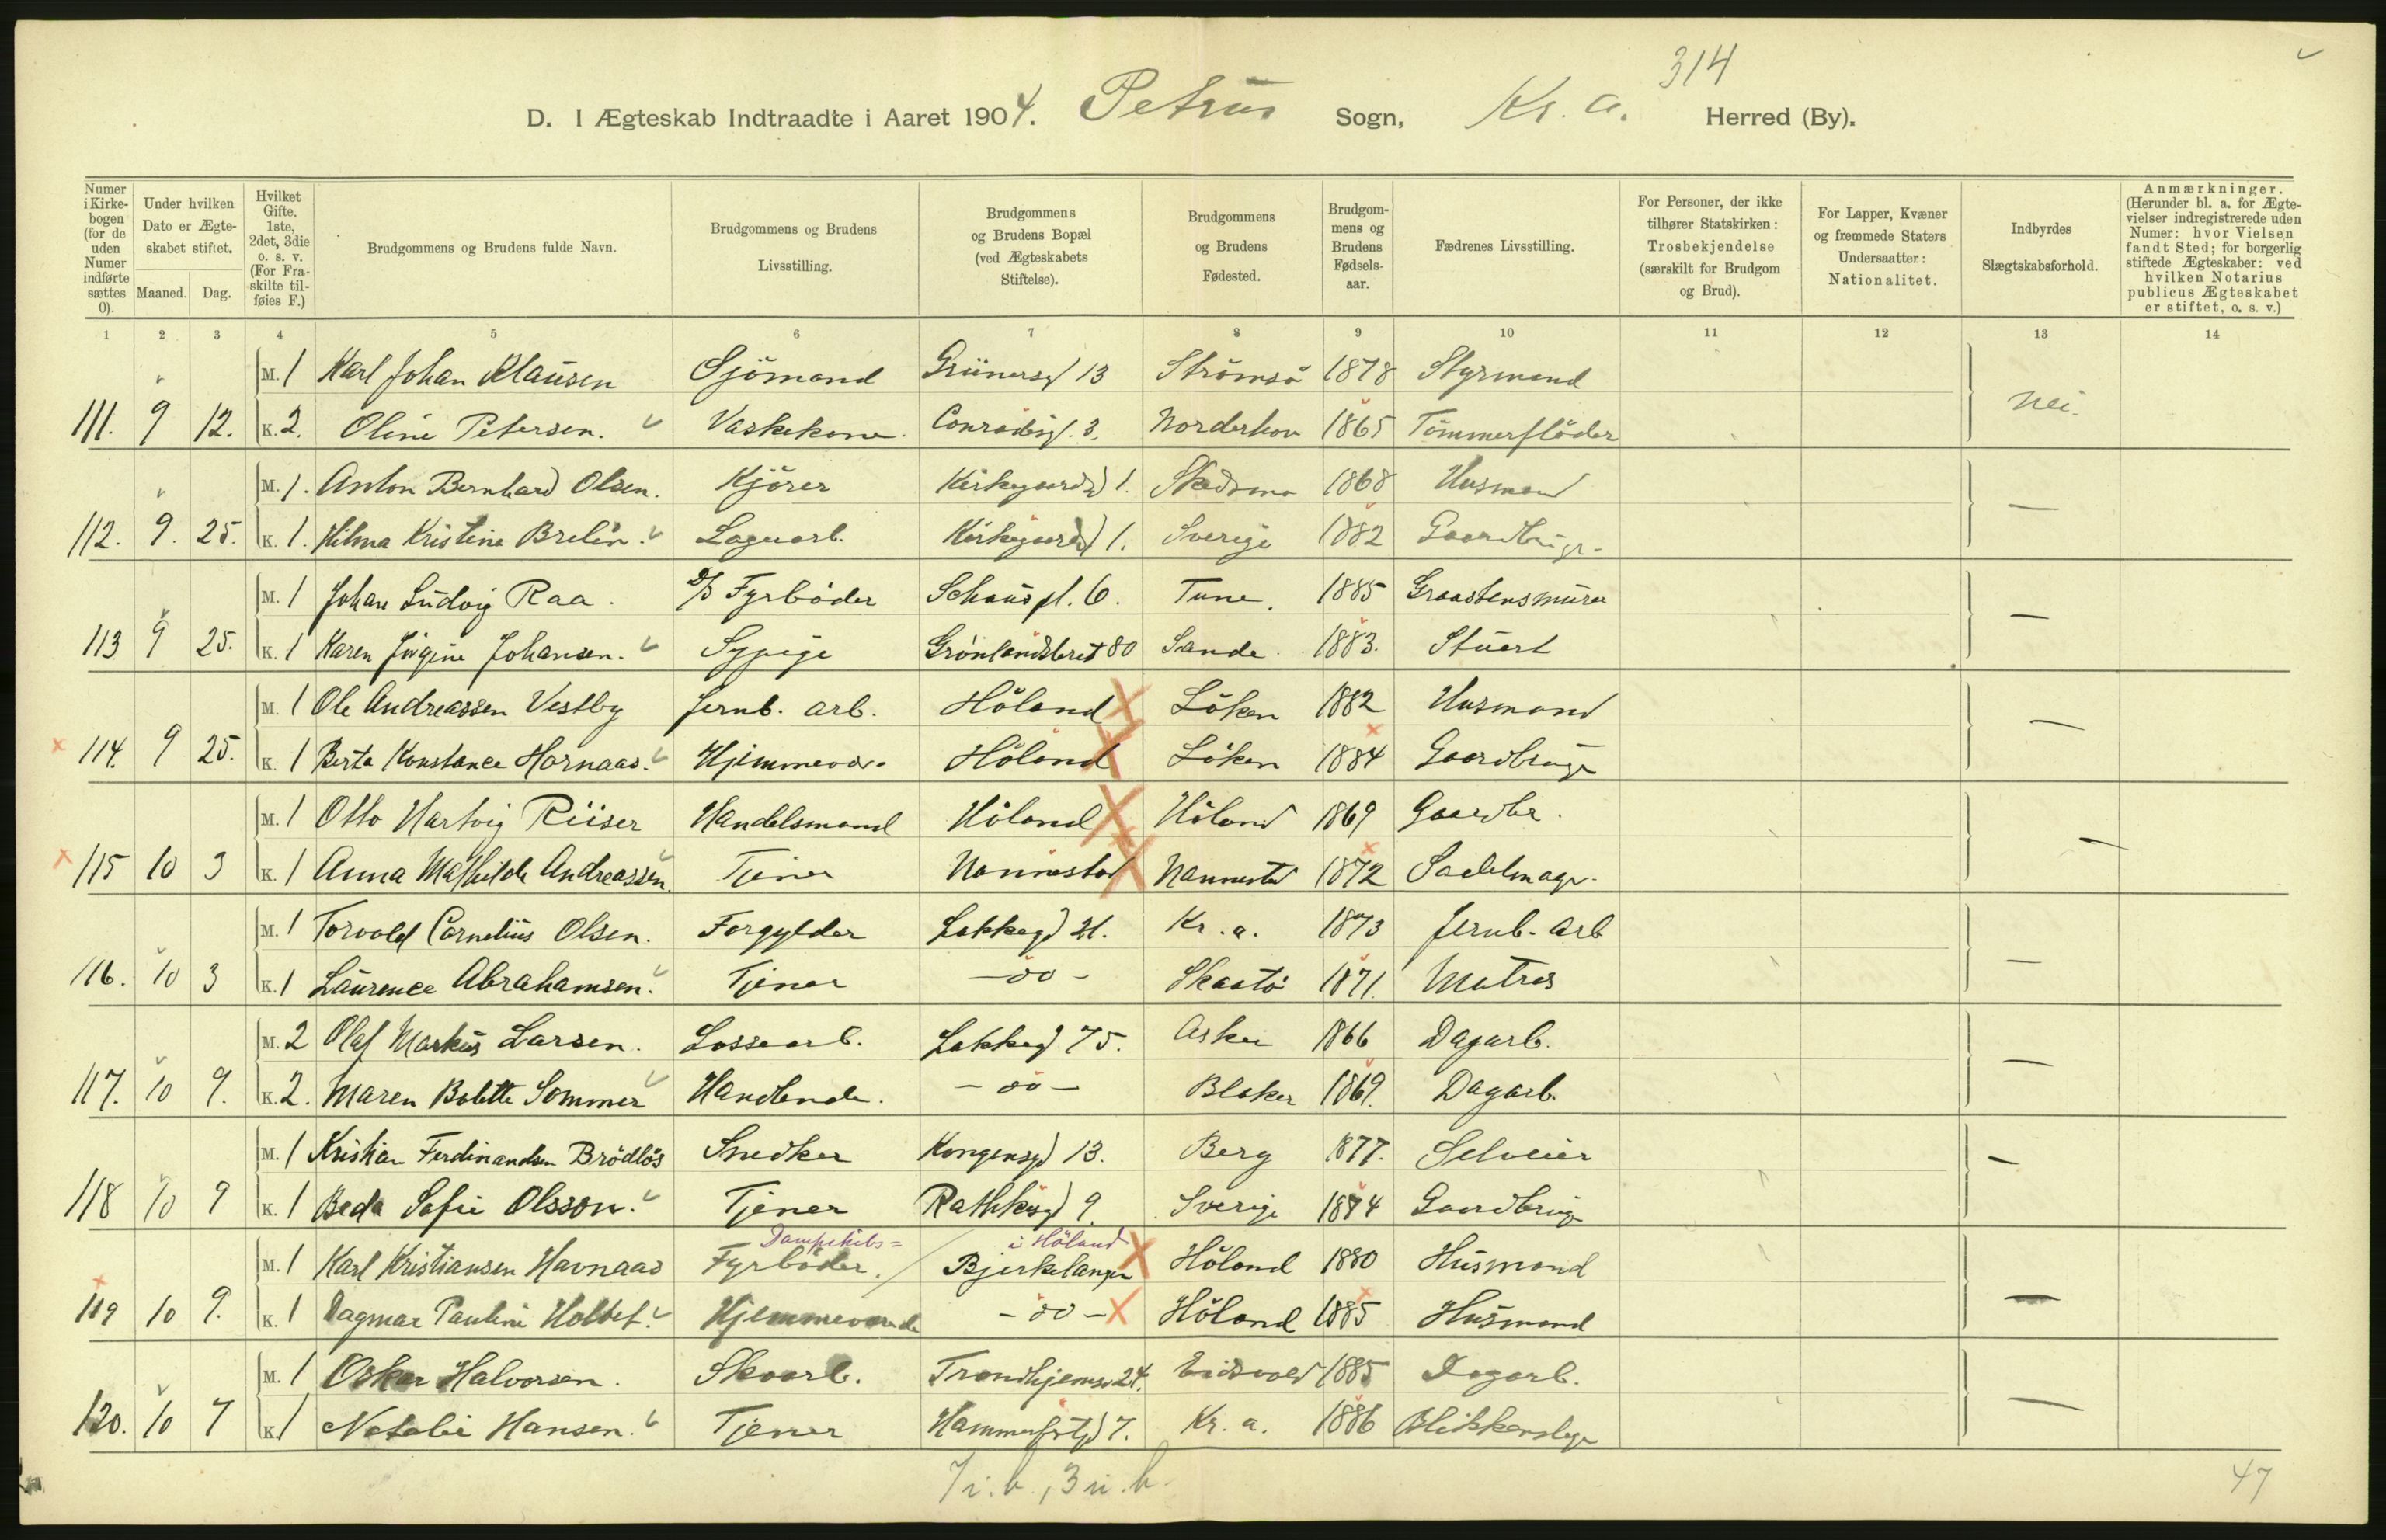 314
D. I Ægteskab Indtraadte i Aaret 1904. Petrus Sogn, Kr. a. Herred (By).
Numer i Kirkebogen (for de uden Numer indførte sættes 0).
Under hvilken Dato er Ægteskabet stiftet.
Maaned. Dag.
Hvilket Gifte. 1ste, 2det, 3die o. s. v. (For Fraskilte tilføies F.)
Brudgommens og Brudens fulde Navn.
Brudgommens og Brudens Livsstilling.
Brudgommens og Brudens Bopæl (ved Ægteskabets Stiftelse).
Brudgommens og Brudens Fødested.
Brudgommens og Brudens Fødselsaar.
Fædrenes Livsstilling.
For Personer, der ikke tilhører Statskirken: Trosbekjendelse (særskilt for Brudgom og Brud).
For Lapper, Kvæner og fremmede Staters Undersaatter: Nationalitet.
Indbyrdes Slægtskabsforhold.
Anmærkninger. (Herunder bl. a. for Ægtevielser indregistrerede uden Numer: hvor Vielsen fandt Sted; for borgerlig stiftede Ægteskaber: ved hvilken Notarius publicus Ægteskabet er stiftet, o. s. v.)
1 2 3 4 5 6 7 8 9 10 11 12 13 14
M. 1 Karl Johan Klausen Sjömand Grünersg 13 Strömsö 1878 Styrmand
111. 9 12. K. 2. Oline Petersen. Vaskekone. Conradisg. 3. Norderhov 1865 Tömmerflöder Nei.
M. 1. Anton Bernhard Olsen. Kjörer Kirkegaardsg 1. Skedsmo 1868 Husmand
112. 9. 25. K. 1. Hilma Kristina Brelin. Lagerarb. Kirkegaardsg 1. Sverige 1882 Gaardbruger —
M. 1 Johan Ludvig Raa. D/S Fyrböder Schous pl. 6. Tune. 1885 Graastensmurer
113 9 25. K. 1 Karen Jörgine Johansen. Sypige Grönlandsleret 80 Sande 1883. Stuert —
M. 1 Ole Andreassen Vestby Jernb. arb. Höland Löken 1882 Husmand
114. 9 25. K. 1 Berta Konstance Hornaas. Hjemmevær. Höland Löken 1884 Gaardbruger —
M. 1 Otto Hartvig Riiser Handelsmand Höland Höland 1869 Gaardbr.
115 10 3 K. 1 Anna Mathilde Andreassen. Tjener Nannestad Nannestad 1872 Sadelmager. —
M. 1 Torvald Cornelius Olsen. Forgylder Lakkegd 21. Kr. a. 1873 Jernb. arb
116. 10 3 K. 1 Laurence Abrahamsen. Tjener — do — Skaatö 1871. Matros —
M. 2 Olaf Markus Larsen. Lossearb. Lakkegd 75. Asker 1866 Dagarb.
117. 10 9. K. 2. Maren Bolette Sommer Handlende. — do — Blaker 1869. Dagarb. —
M. 1 Kristian Ferdinandsen Brödlös Snedker Kongensgd 13. Berg 1877. Selveier
118 10 9 K. 1 Beda Sofie Olsson. Tjener Rathkesgd 9. Sverige 1874 Gaardbruger —
Dampskibs= i Höland
M. 1 Karl Kristiansen Havnaas Fyrböder. Bjerkelangen Höland 1880 Husmand
119 10 9. K. 1 Dagmar Pauline Holtet. Hjemmeværende — do — Höland 1885 Husmand —
M. 1 Oskar Halvorsen. Skoarb. Trondhjemsv 24. Eidsvold 1885 Dagarb.
120. 10 7 K. 1 Natalie Hansen. Tjener Hammerfestgd 7. Kr. a. 1886 Blikkenslager —
7 i. b., 3 u. b.
47